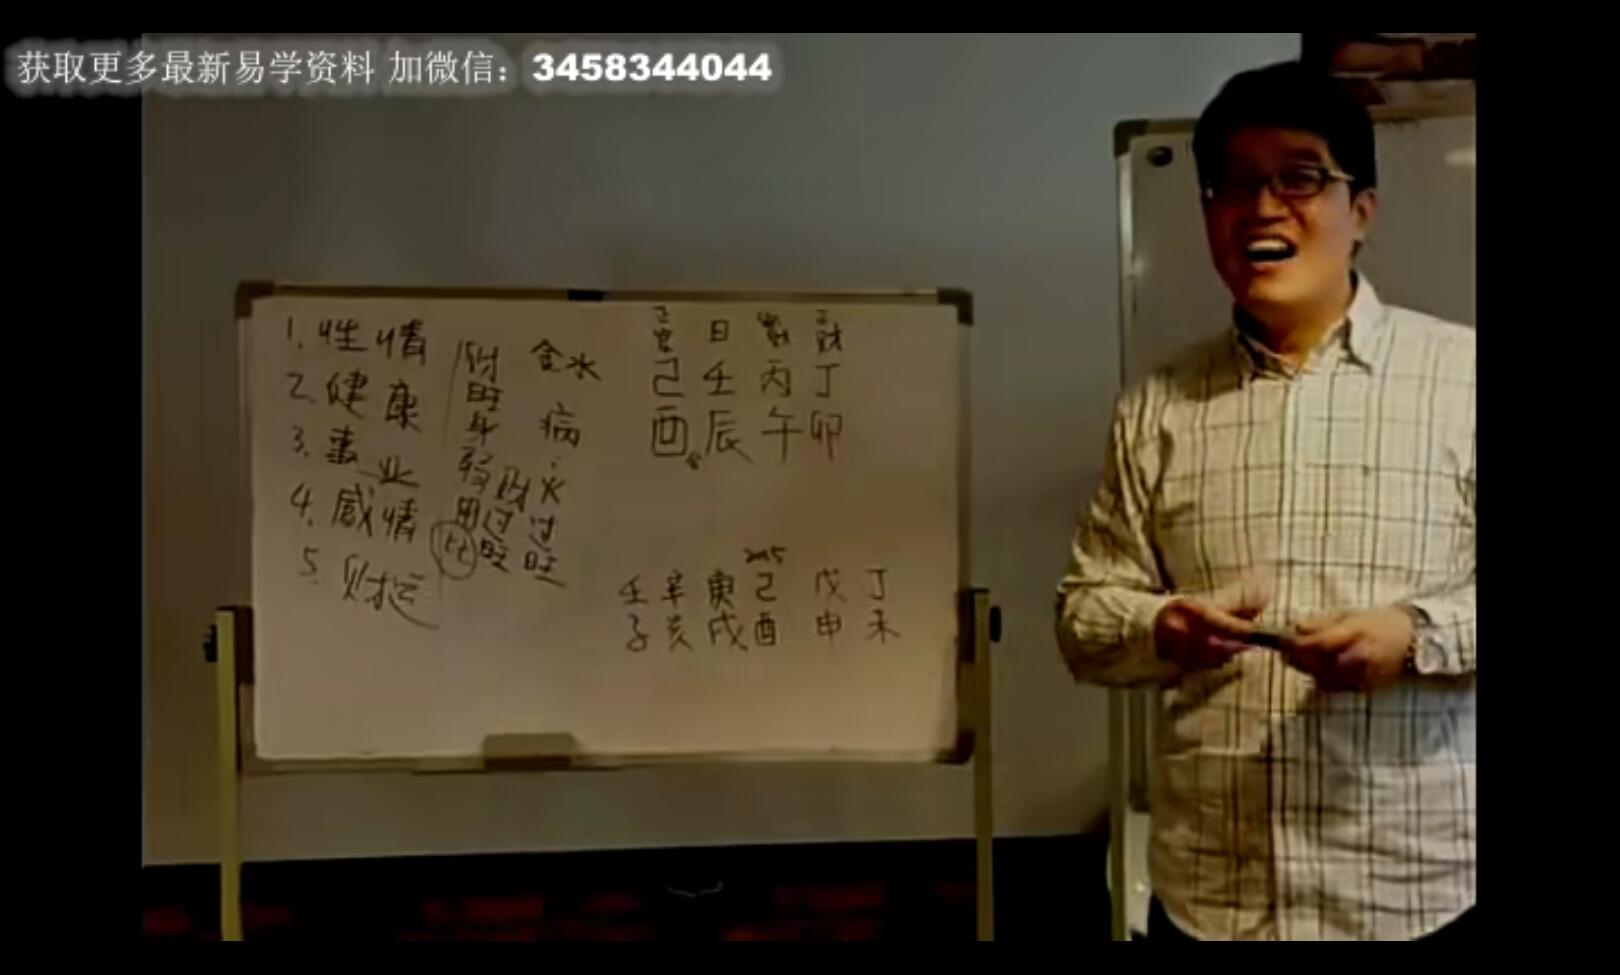 获取更多最新易学资料 加微信：3458344044
1. 性情
2. 健康
3. 事业
4. 感情
5. 财运
财旺身弱用比
财过旺
金水
病：火过旺
正官 日 正财
己 壬 丙 丁
酉 辰 午 卯
2015
壬 辛 庚 己 戊 丁
子 亥 戌 酉 申 未